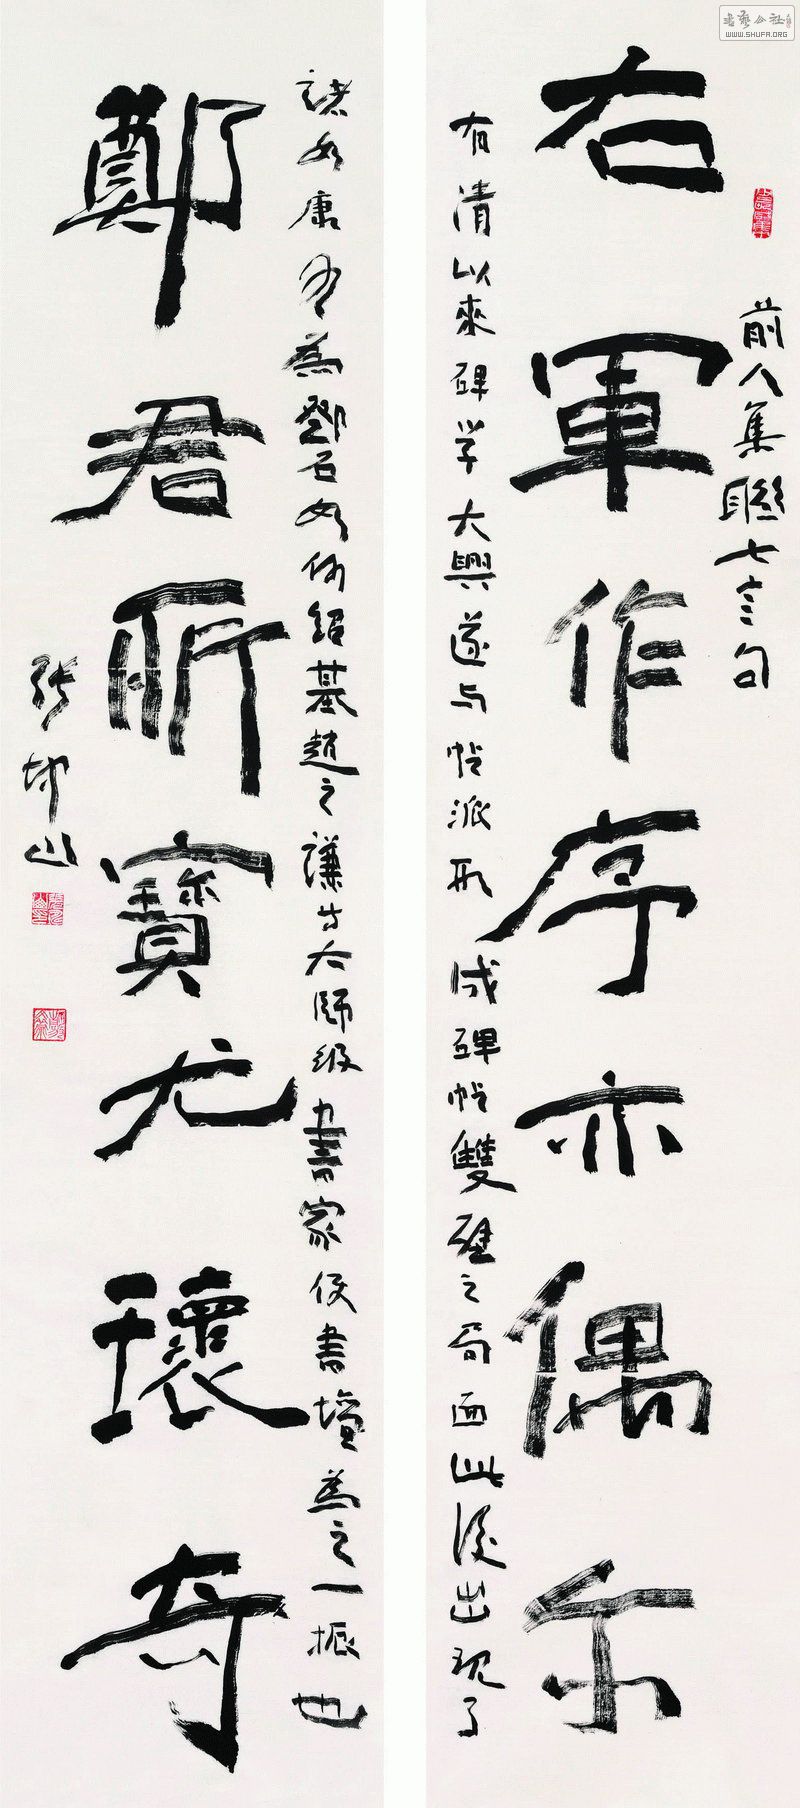 書藝公社
WWW.SHUFA.ORG
前人集聯七言句
右軍作序亦偶尔
有清以來碑学大興遂与帖派形成碑帖雙璧之局面此後出現了
諸如康有為鄧石如何紹基趙之謙等大師級書家使書壇為之一振也
鄭君所寶尤瓌奇
張坤山